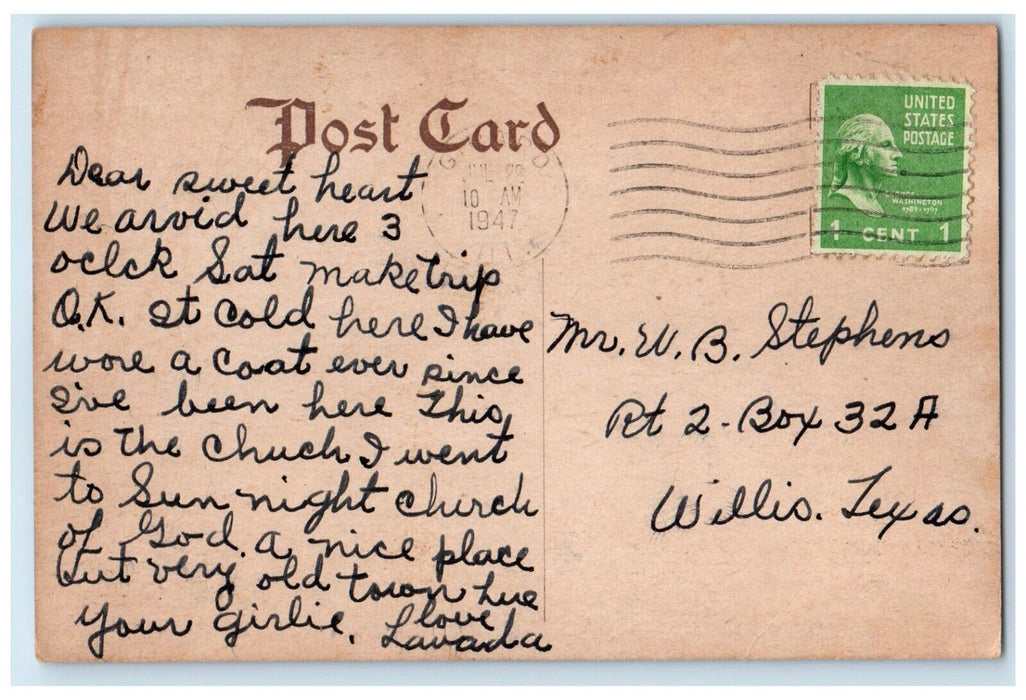 Post Card
UNITED
STATES
POSTAGE
WASHINGTON
1789-1797
1 CENT 1
JUL
10 AM
1947
Dear sweet heart
We arvid here 3
oclck Sat make trip
O.K. It cold here I have
wore a coat ever since
I've been here This
is the Chuch I went
to Sun night church
of God. a nice place
but very old town here
your girlie. love
Lavada
Mr. W. B. Stephens
Rt 2 - Box 32 A
Willis. Texas.